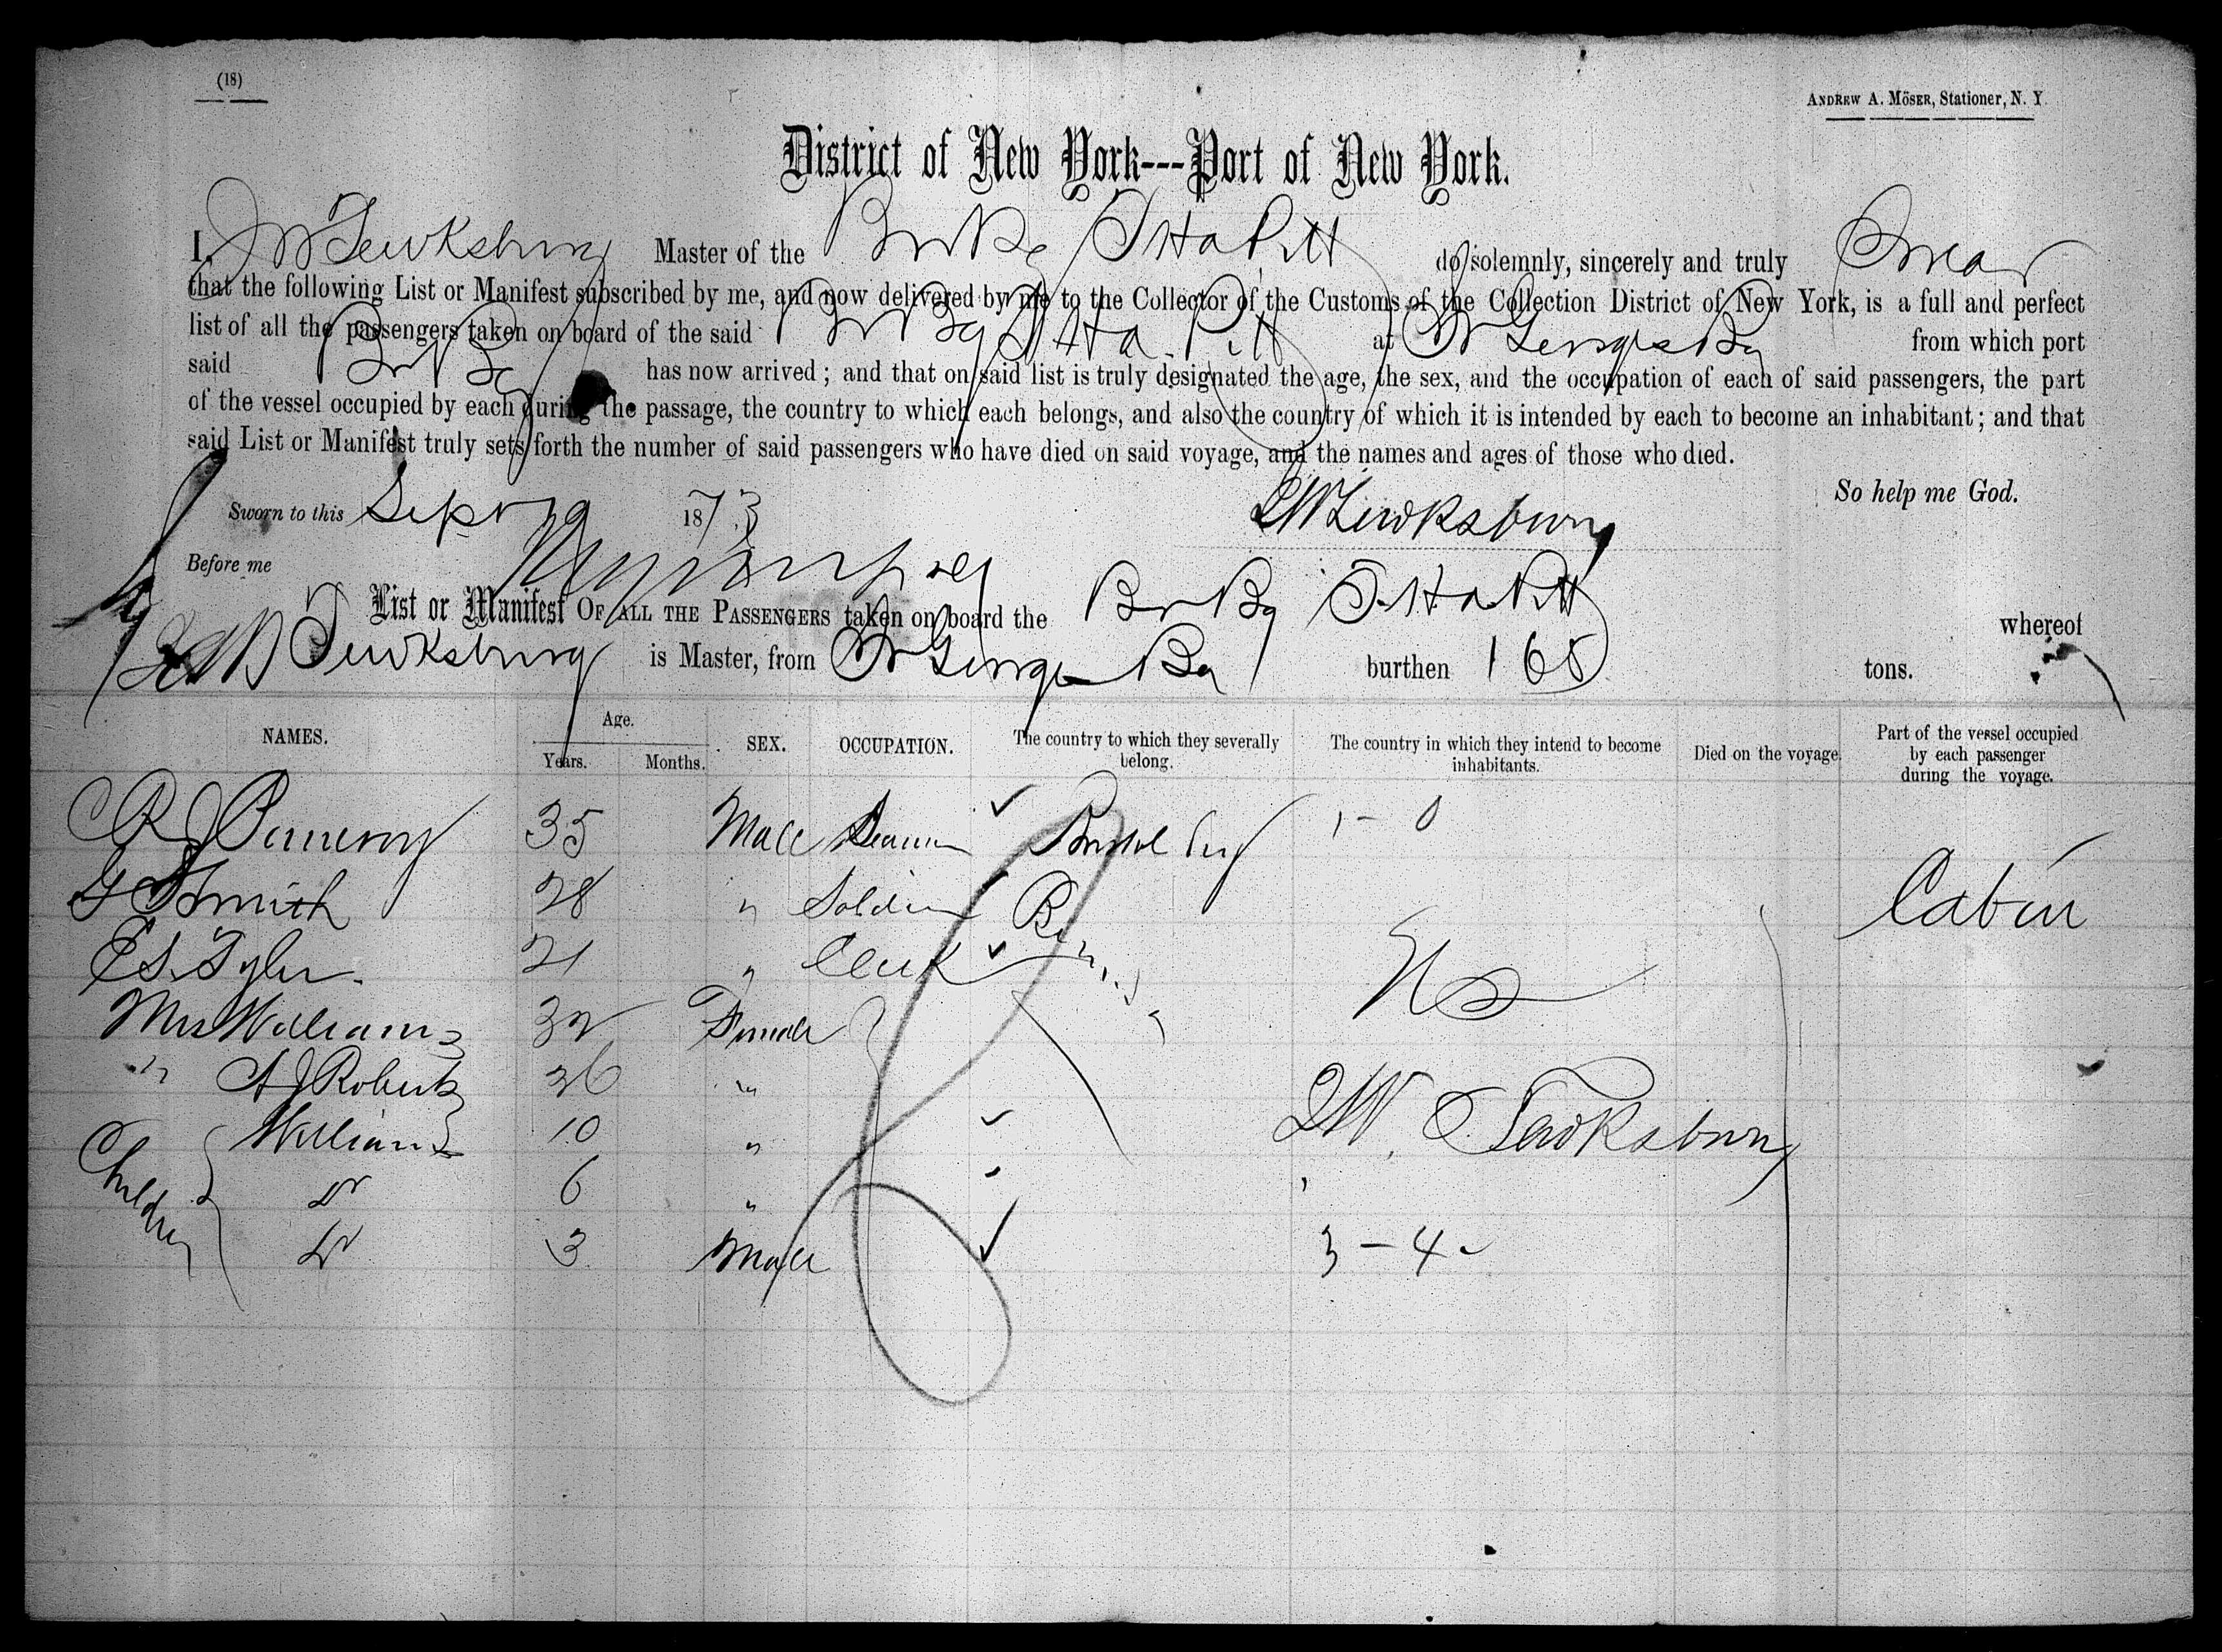 (18)
ANDREW A. MÖSER, Stationer, N. Y.
District of New York---Port of New York.
I, Tewksbury Master of the Br Bg T. H. A. Pitt do solemnly, sincerely and truly Swear
that the following List or Manifest subscribed by me, and now delivered by me to the Collector of the Customs of the Collection District of New York, is a full and perfect
list of all the passengers taken on board of the said Br Bg T. H. A. Pitt at St Georges Ba from which port
said Br Bg has now arrived; and that on said list is truly designated the age, the sex, and the occupation of each of said passengers, the part
of the vessel occupied by each during the passage, the country to which each belongs, and also the country of which it is intended by each to become an inhabitant; and that
said List or Manifest truly sets forth the number of said passengers who have died on said voyage, and the names and ages of those who died.
So help me God.
Sworn to this Sept 9 1873 Tewksbury
Before me
List or Manifest OF ALL THE PASSENGERS taken on board the Br Bg T. H. A. Pitt whereof
Tewksbury is Master, from St Georges Ba burthen 168 tons.
NAMES. Age. Years. Months. SEX. OCCUPATION. The country to which they severally belong. The country in which they intend to become inhabitants. Died on the voyage. Part of the vessel occupied by each passenger during the voyage.
R J Pomeroy 35 Male Seaman Bristol Eng 1 - 0
G Smith 28 " Soldier Bermuda Cabin
E S. Tyler. 21 " Clerk
Mrs Williams 32 Female
" A J Roberts 36 "
Children Williams 10 " Tewksbury
Do 6 "
Do 3 Male 3 - 4